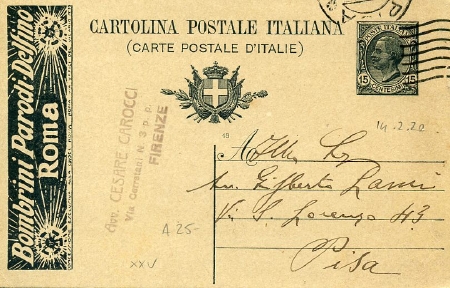 CARTOLINA POSTALE ITALIANA
(CARTE POSTALE D'ITALIE)
Bombrini Parodi-Delfino
Roma
POSTE ITALIANE
15 CENTESIMI 15
14.2.22
15
Avv. CESARE CAROCCI
Via Cerretani N. 3 p. p.
FIRENZE
All'Ill.
Avv. Gilberto Lami
Via S. Lorenzo 43
Pisa
A 25-
XXV